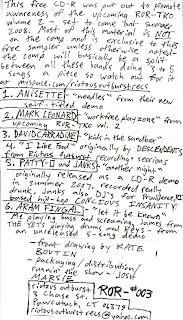 This free CD-R was put out to promote
awareness of the upcoming ROR-TKO
volume 2 - set to come out summer
2008. Most of this material is NOT
on the comp and exclusive to this
free sampler unless otherwise noted-
The comp will basically be a split
between all these bands at 2 to 3
songs a piece so watch out for it
at myspace.com/riotousoutburstrecs
1. ANISETTE - "needles" from their new
self-titled demo
2. MARK LEONARD - "workfree playzone" from
upcoming ROR-TKO vol. 2
3. DAVID CARRADINE - "kids in the sandbox"
4. "I Like Food" originally by DESCENDENTS
from Riotous Outburst recording sessions
5. PRETTY-O and JANKS - "another night"
originally released as a CD-R demo
in summer 2007, recorded really
drunk, Janks also DJ's for
based hip-hop CONVICS INSANITY.
6. - "let it be known"
me playing bass and screaming, James from
THE YETIS playing drums and keys - from
an unreleased 5-song demo
- front drawing by KATE
BOUTIN
- packaging/distribution/
runnin' the show - JOSH
MARSIE
riotous outburst
3 Chase St.
Pawcatuck, CT 06379
riotousoutburst@yahoo.com
ROR-#003